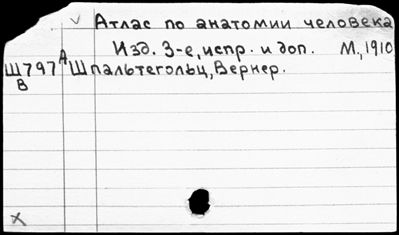 √ Атлас по анатомии человека
Изд. 3-е, испр. и доп. М., 1910
Ш797 А Шпальтегольц, Вернер.
В
х